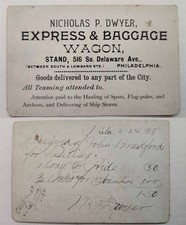 NICHOLAS P. DWYER,
EXPRESS & BAGGAGE
WAGON,
STAND, 516 So. Delaware Ave.,
(BETWEEN SOUTH & LOMBARD STS.) PHILADELPHIA.
Goods delivered to any part of the City.
All Teaming attended to.
Attention paid to the Hauling of Spars, Flag-poles, and
Anchors, and Delivering of Ship Stores.
Phila 2-24 88
of John Bradford
for hauling
load to 50
1.00
1.50
N. P. Dwyer